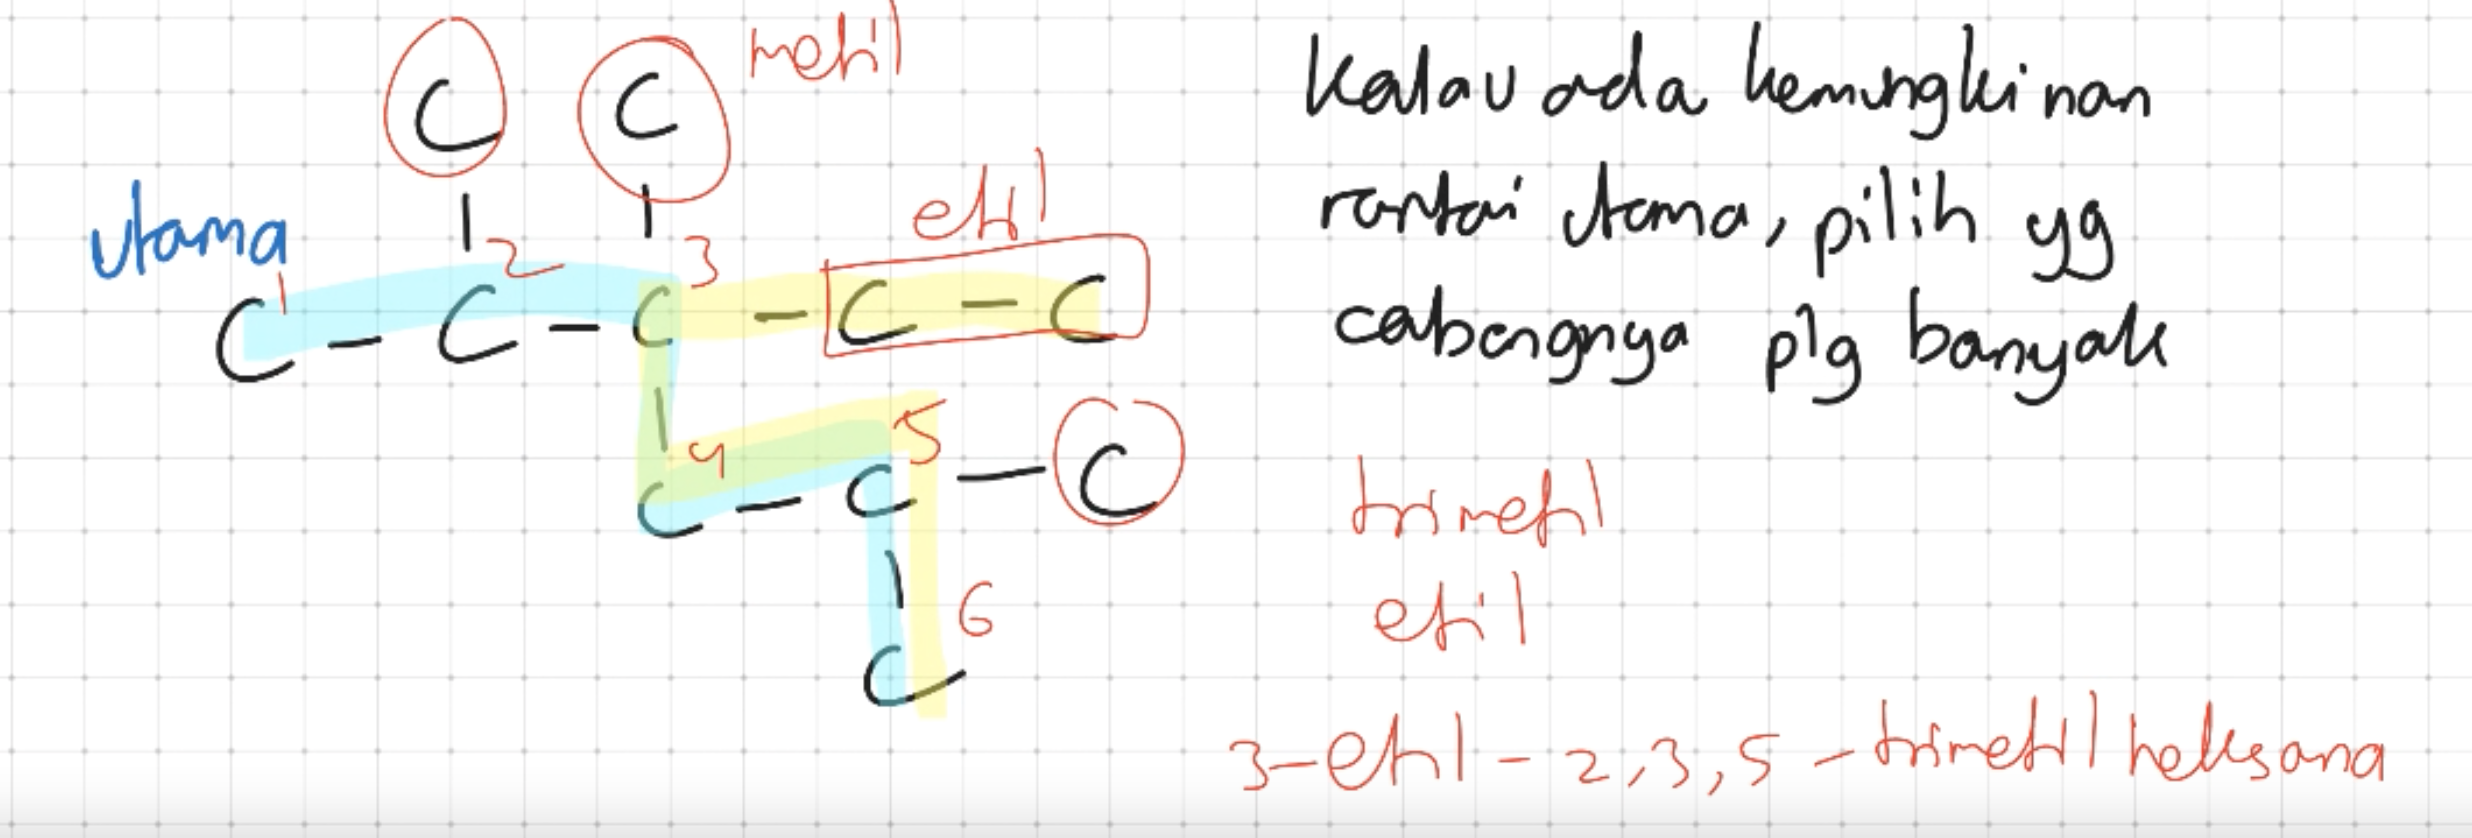 C C metil
| |
etil
utama
1 2 3
C - C - C - C - C
|
4 5
C - C - C
|
6
C
Kalau ada kemungkinan
rantai utama, pilih yg
cabangnya plg banyak
trimetil
etil
3-etil-2,3,5-trimetil heksana